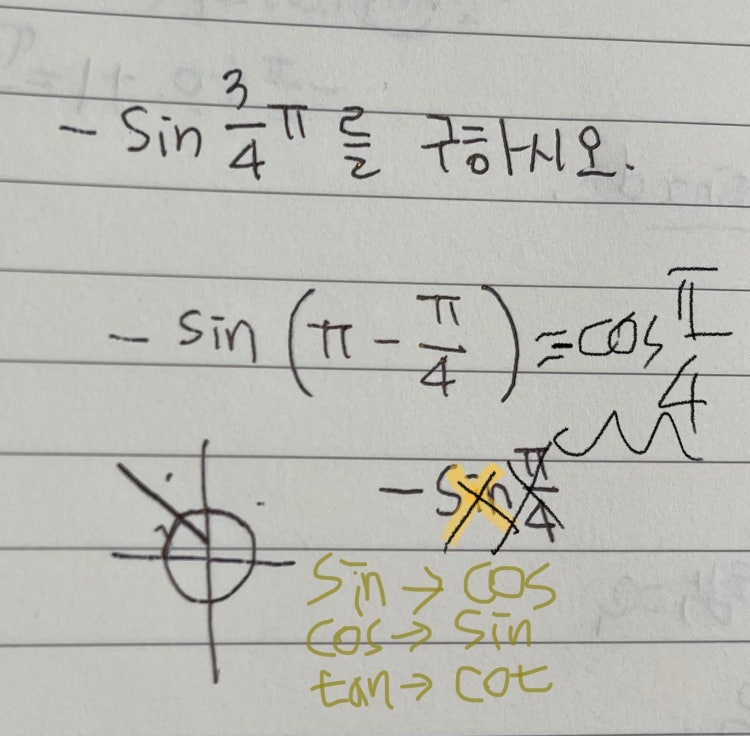 - sin 3/4 π 를 구하시오.
- sin (π - π/4) = cos π/4
- sin π/4
sin → cos
cos → sin
tan → cot